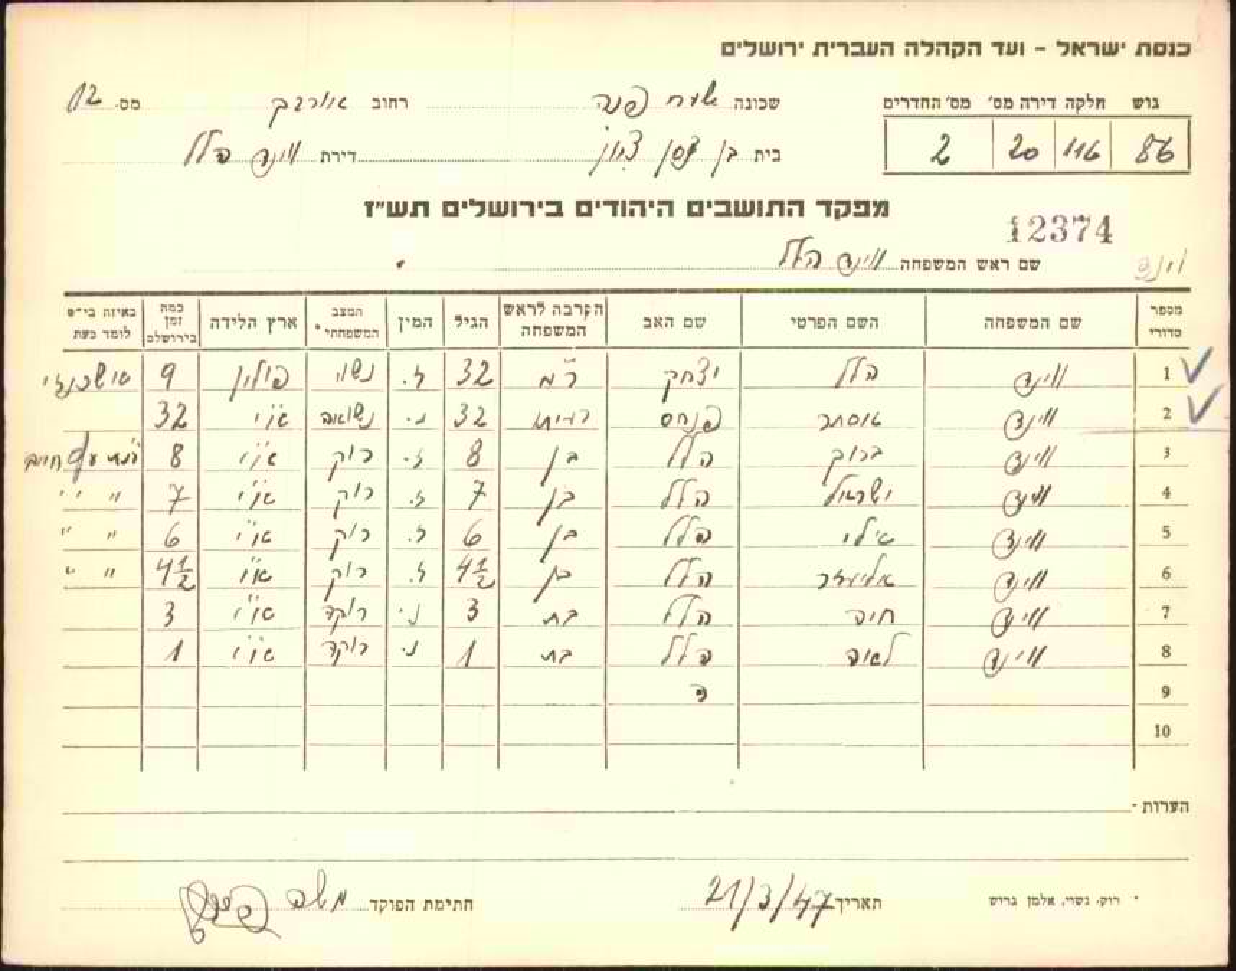 כנסת ישראל - ועד הקהלה העברית ירושלים
גוש חלקה דירה מס' מס' החדרים
86 116 20 2
שכונה שערי פנה רחוב אוורבך מס. 12
בית בן נסן ציון דירת ווינד הלל
מפקד התושבים היהודים בירושלים תש"ז
12374
שם ראש המשפחה ווינד הלל
וינד
מספר סדורי שם המשפחה השם הפרטי שם האב הקרבה לראש המשפחה הגיל המין המצב המשפחתי* ארץ הלידה כמה זמן בירושלם באיזה בי"ס לומד כעת
1 ווינד הלל יצחק ר"מ 32 ז. נשוי פולין 9 אשכנזי
2 ווינד אסתר פנחס 32 נ. נשואה א"י 32
3 ווינד ברוך הלל בן 8 ז. רוק א"י 8 עץ חיים
4 ווינד ישראל הלל בן 7 ז. רוק א"י 7 " "
5 ווינד אלי הלל בן 6 ז. רוק א"י 6 " "
6 ווינד אליעזר הלל בן 4½ ז. רוק א"י 4½ " "
7 ווינד חיה הלל בת 3 נ. רוקה א"י 3
8 ווינד לאה הלל בת 1 נ. רוקה א"י 1
9
10
הערות -
* רוק, נשוי, אלמן גרוש תאריך 21/3/47 חתימת הפוקד משה